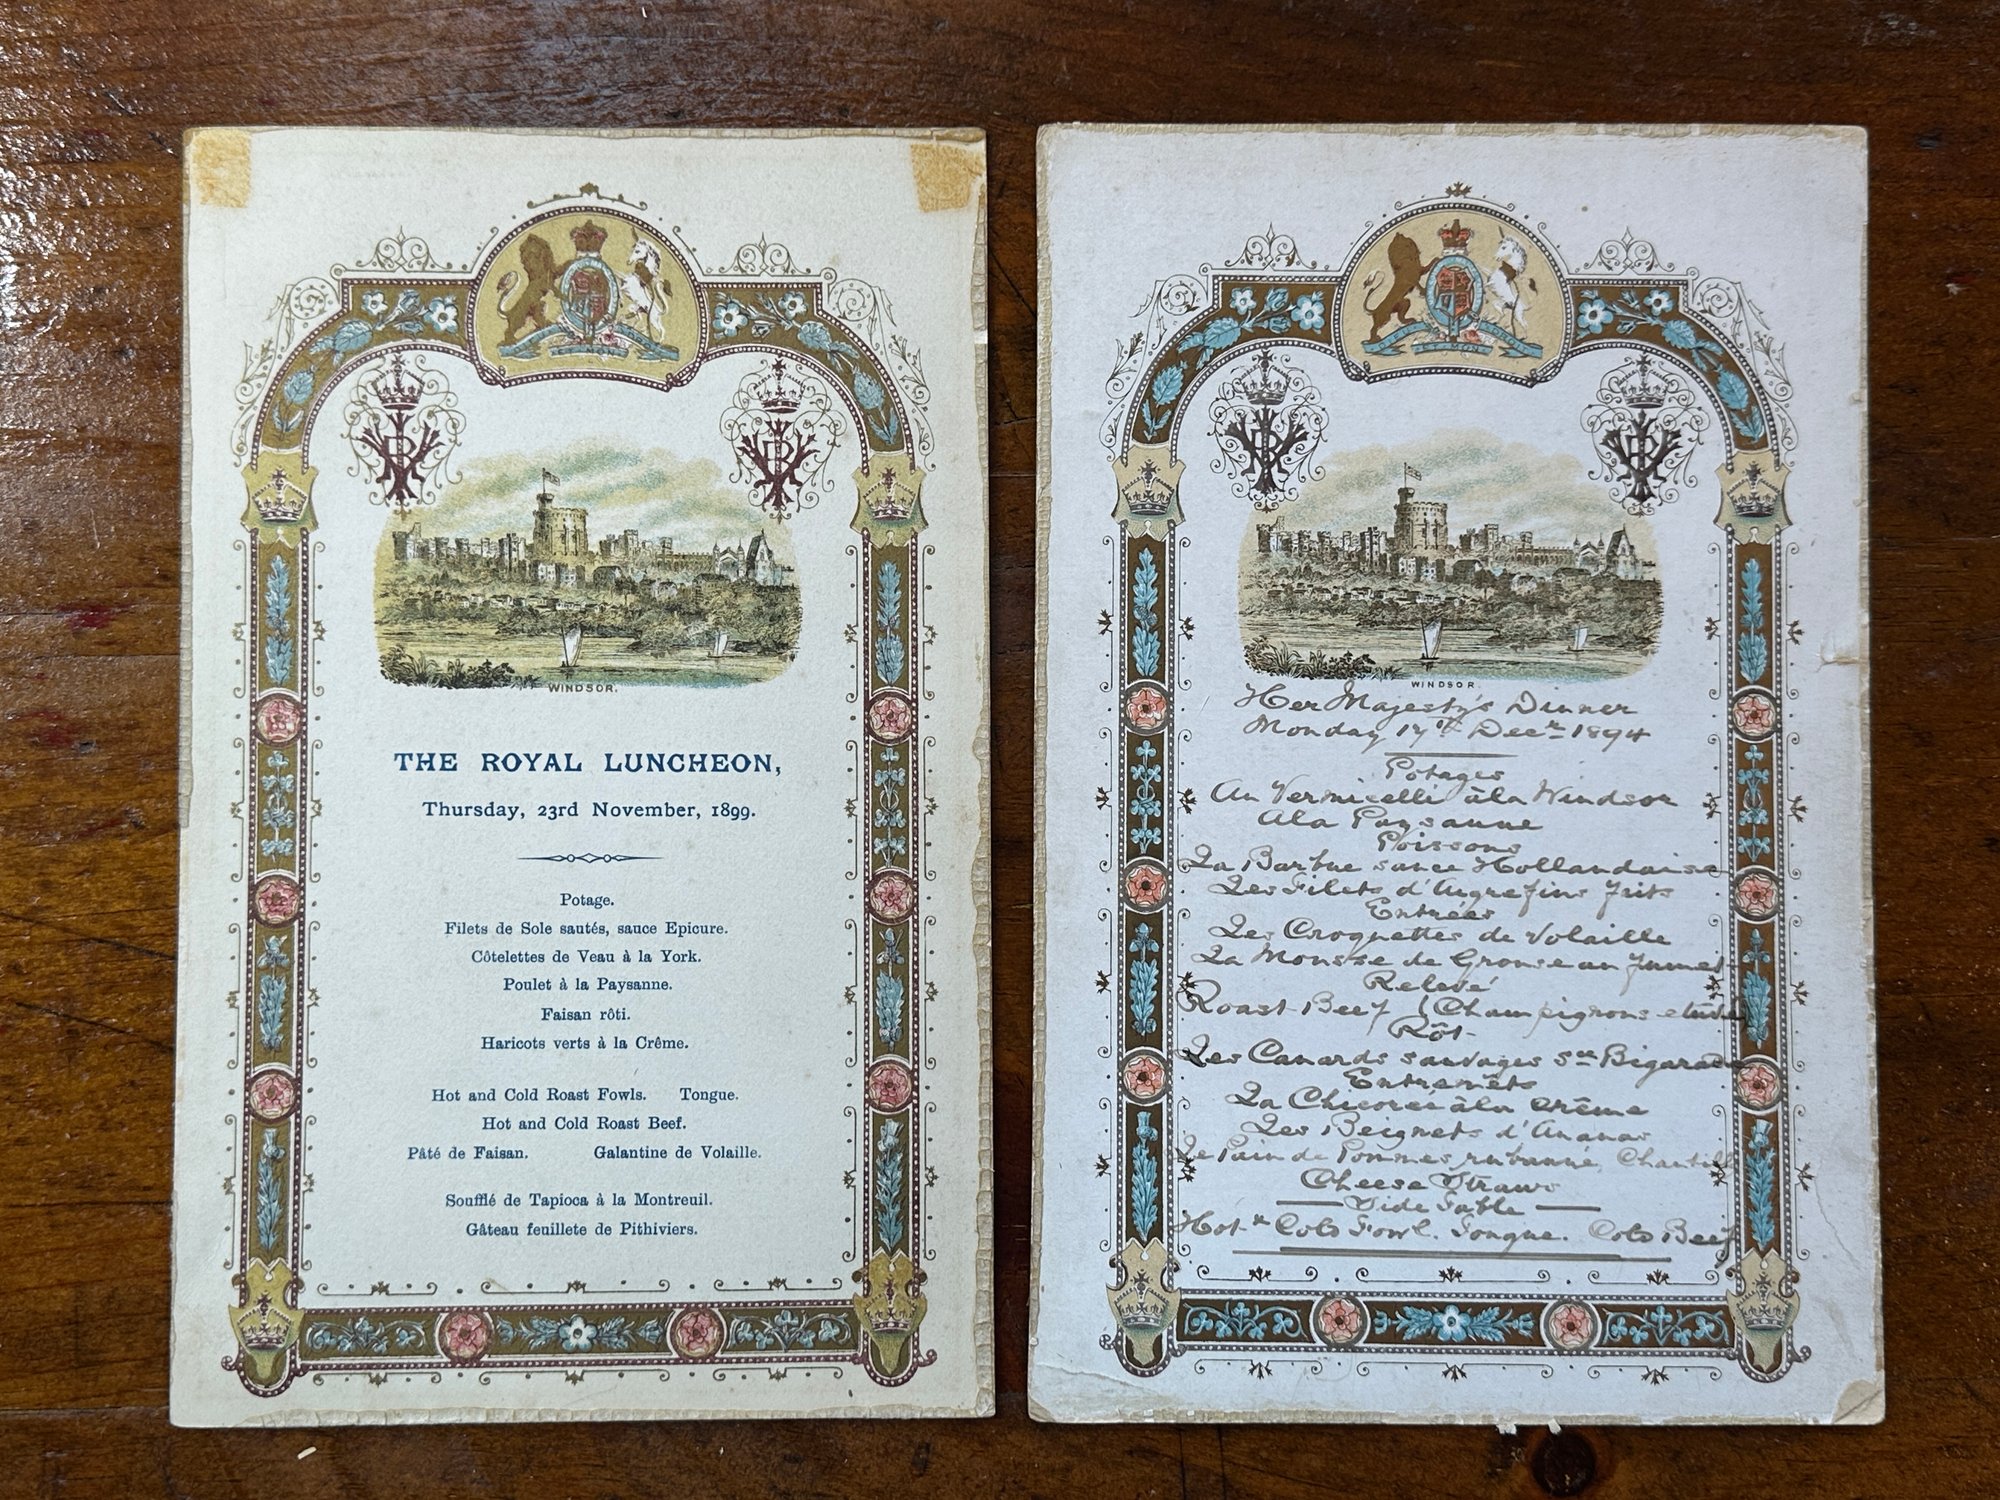 WINDSOR.
THE ROYAL LUNCHEON,
Thursday, 23rd November, 1899.
Potage.
Filets de Sole sautés, sauce Epicure.
Côtelettes de Veau à la York.
Poulet à la Paysanne.
Faisan rôti.
Haricots verts à la Crême.
Hot and Cold Roast Fowls. Tongue.
Hot and Cold Roast Beef.
Pâté de Faisan. Galantine de Volaille.
Soufflé de Tapioca à la Montreuil.
Gâteau feuillete de Pithiviers.
WINDSOR.
Her Majesty's Dinner
Monday 17th Decr 1894
Potages
Au Vermicelli à la Windsor
A la Paysanne
Poissons
La Barbue sauce Hollandaise
Les Filets d'Aigrefins frits
Entrées
Les Croquettes de Volaille
La Mousse de Grouse au fumet
Relevé
Roast Beef / Champignons
Rôt
Les Canards sauvages Sce Bigarade
Entremêts
La Chicorée à la crême
Les Beignets d'Ananas
Le Pain de Pommes rubanné, Chantilly
Cheese Straws
Side Table
Hot & Cold Fowl. Tongue. Cold Beef